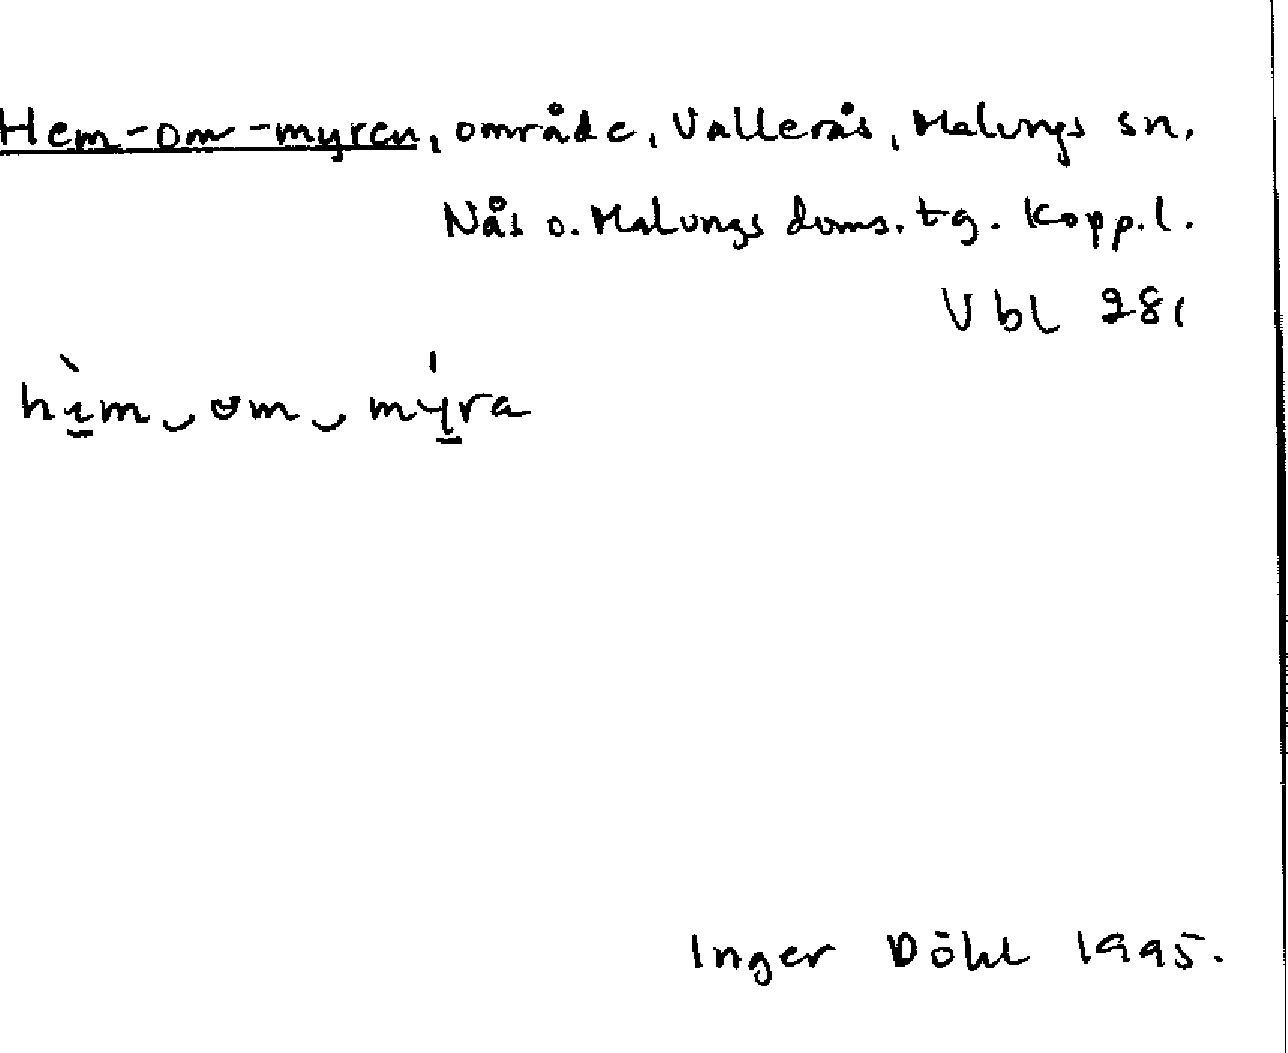 Hem-om-myren, område, Vallerås, Malungs sn.
Nås o. Malungs doms. tg. Kopp.l.
Vbl 281
hèm‿ɷm‿mýra
Inger Döhl 1995.